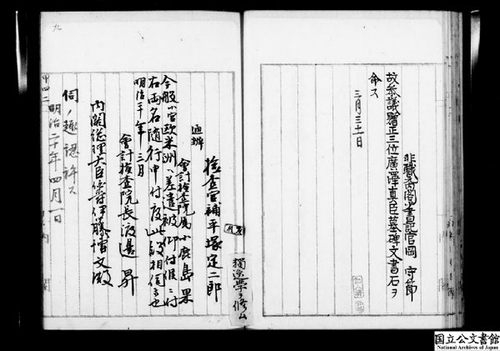 非職内閣書記官岡守節
故参議贈正三位廣澤真臣墓碑文書石ヲ
命ス
三月三十一日
獨逸學ヲ修ム
検査官補平塚定二郎
通辨
会計検査院属小鹿島果
今般小官欧米洲ヘ差遣被仰付候ニ付
右両名随行申付度此段相伺候也
明治二十年三月
会計検査院長渡邊昇
内閣総理大臣伯爵伊藤博文殿
伺ノ趣認許ス
明治二十年四月一日
甲四二
九
国立公文書館
National Archives of Japan